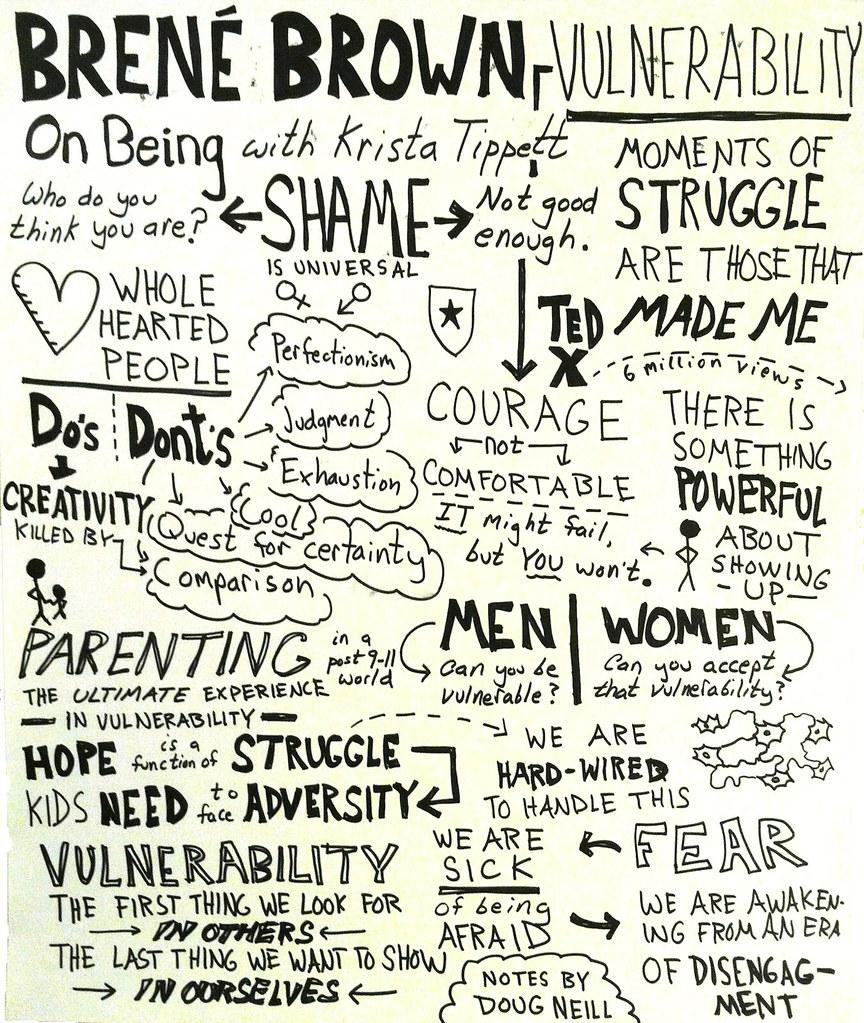 BRENÉ BROWN
VULNERABILITY
On Being with Krista Tippett
Who do you
think you are?
SHAME
IS UNIVERSAL
Not good
enough.
MOMENTS OF
STRUGGLE
ARE THOSE THAT
MADE ME
WHOLE
HEARTED
PEOPLE
TED
X
6 million views
Do's
Dont's
Perfectionism
Judgment
Exhaustion
Cool
Quest for certainty
Comparison
CREATIVITY
KILLED BY
COURAGE
not
COMFORTABLE
IT might fail,
but YOU won't.
THERE IS
SOMETHING
POWERFUL
ABOUT
SHOWING
- UP -
PARENTING
in a
post 9-11
world
THE ULTIMATE EXPERIENCE
IN VULNERABILITY
MEN
Can you be
vulnerable?
WOMEN
Can you accept
that vulnerability?
HOPE is a function of STRUGGLE
KIDS NEED to face ADVERSITY
WE ARE
HARD-WIRED
TO HANDLE THIS
VULNERABILITY
THE FIRST THING WE LOOK FOR
IN OTHERS
THE LAST THING WE WANT TO SHOW
IN OURSELVES
FEAR
WE ARE
SICK
of being
AFRAID
WE ARE AWAKEN-
ING FROM AN ERA
OF DISENGAG-
MENT
NOTES BY
DOUG NEILL